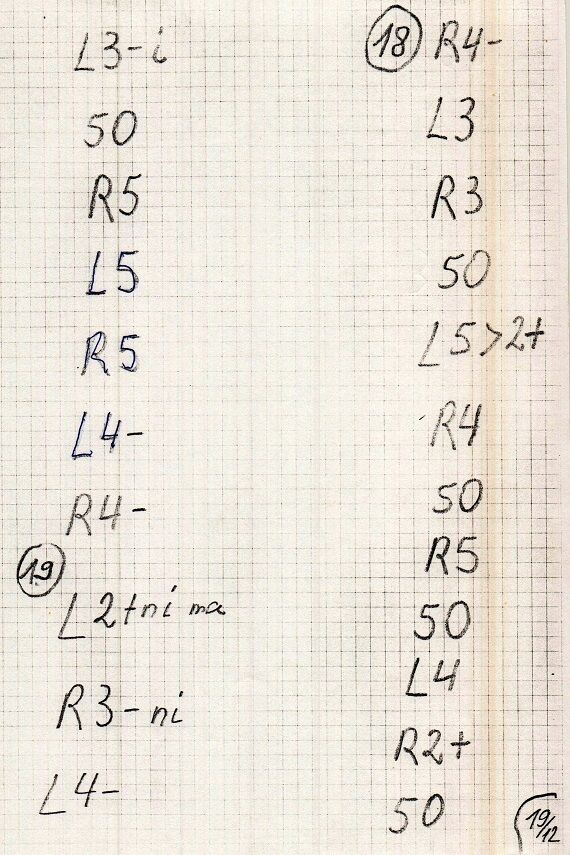 L3-i
50
R5
L5
R5
L4-
R4-
19
L2+ni ma
R3-ni
L4-
18 R4-
L3
R3
50
L5>2+
R4
50
R5
50
L4
R2+
50
19/12